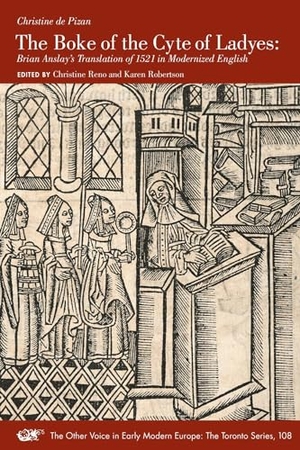 Christine de Pizan
The Boke of the Cyte of Ladyes:
Brian Anslay's Translation of 1521 in Modernized English
EDITED BY Christine Reno and Karen Robertson
The Other Voice in Early Modern Europe: The Toronto Series, 108